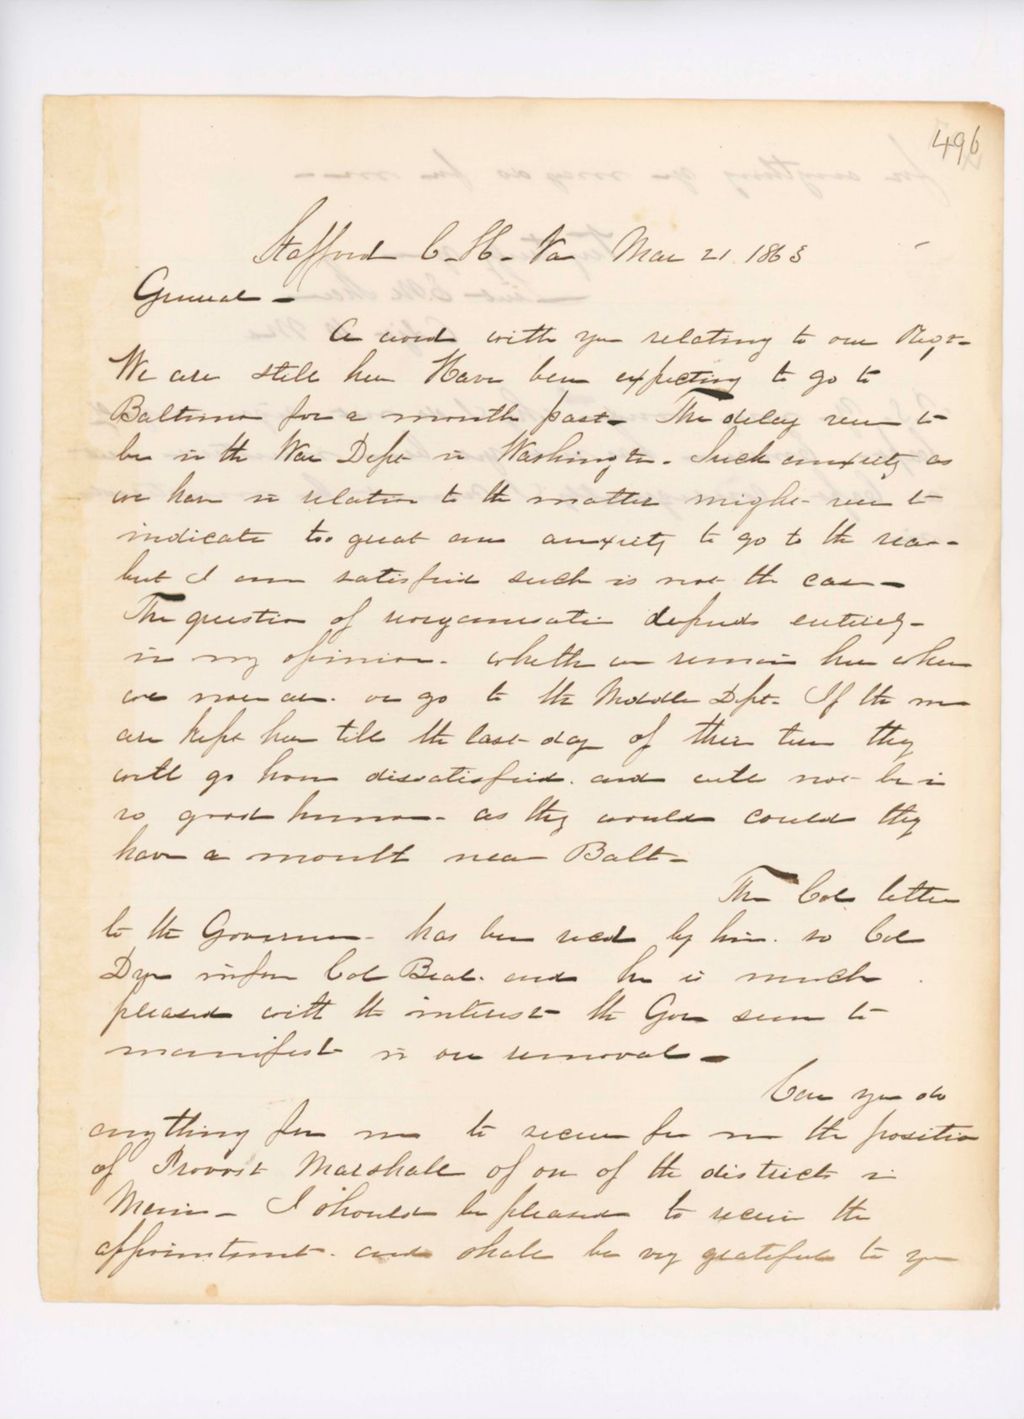 496
Stafford C. H. Va Mar 21 1863
General -
A word with you relating to our Regt.
We are still here Have been expecting to go to
Baltimore for a month past. The delay seems to
be in the War Dept in Washington. Such anxiety as
we have in relation to the matter might seem to
indicate too great an anxiety to go to the rear -
but I am satisfied such is not the case -
The question of reorganisation depends entirely -
in my opinion - whether we remain here where
we now are. or go to the Middle Dept. If the men
are kept here till the last day of their time they
will go home dissatisfied. and will not be in
so good humor - as they would could they
have a month near Balt -
The Cols letter
to the Governor - has been recd by him. so Col
Dyer infor Col Beal. and he is much
pleased with the interest the Gov seems to
manifest in our removal -
Can you do
anything for me to secure for me the position
of Provost Marshall of one of the districts in
Maine - I should be pleased to receive the
appointment. and shall be very grateful to you